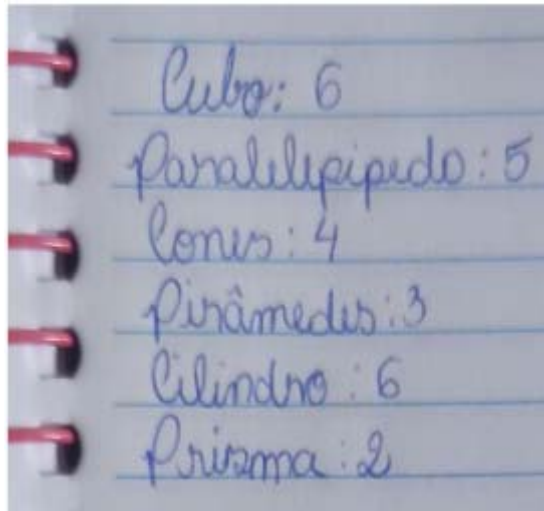 Cubo: 6
Paralelepipedo: 5
Cones: 4
Pirâmedes: 3
Cilindro: 6
Prisma: 2